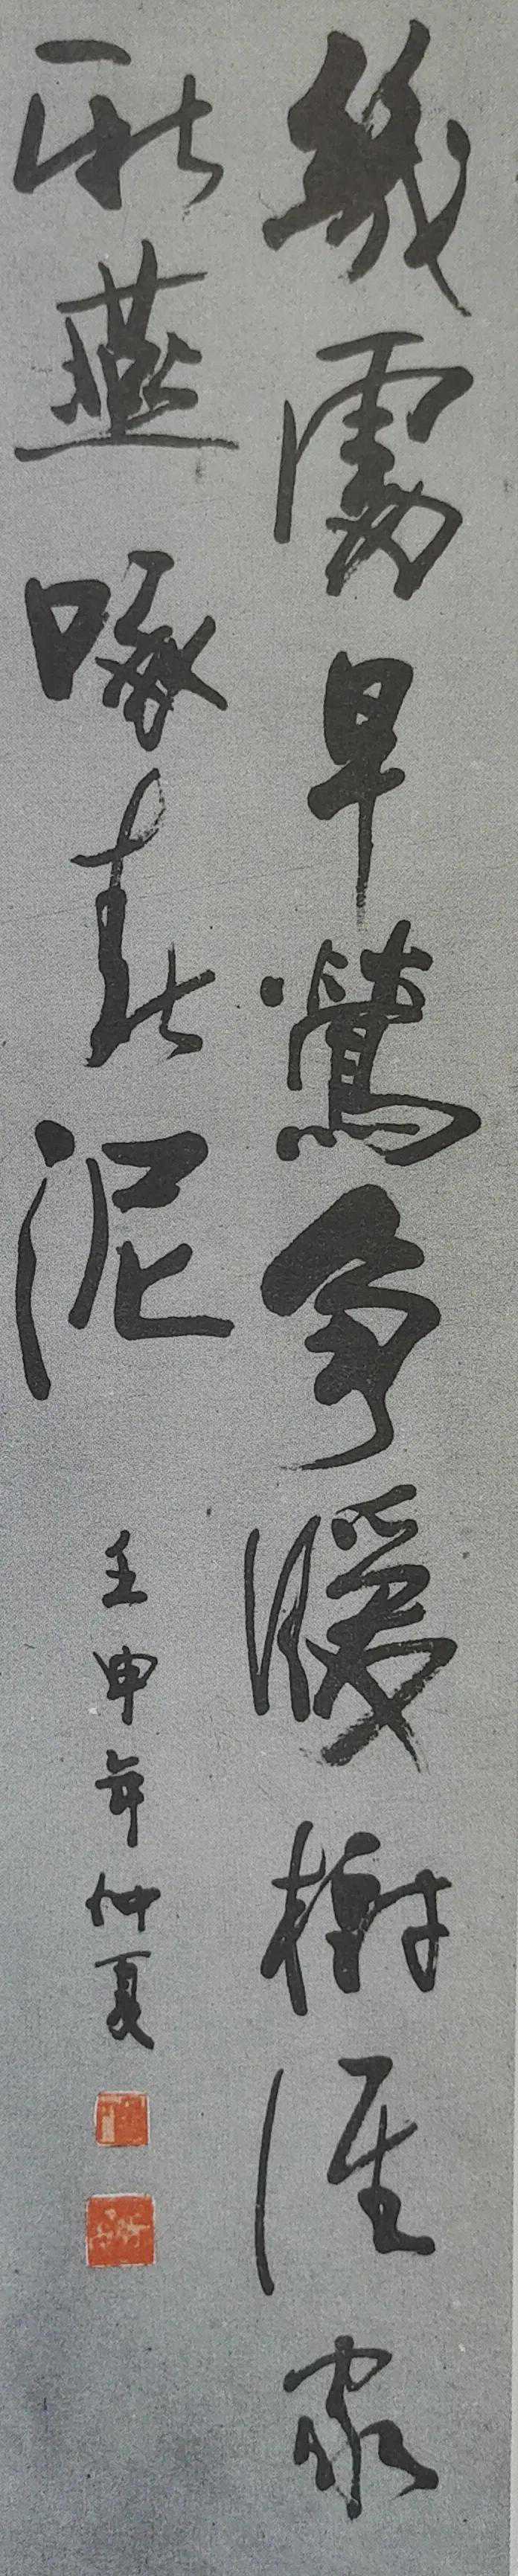 幾處早鶯爭暖樹誰家
新燕啄春泥
壬申年仲夏